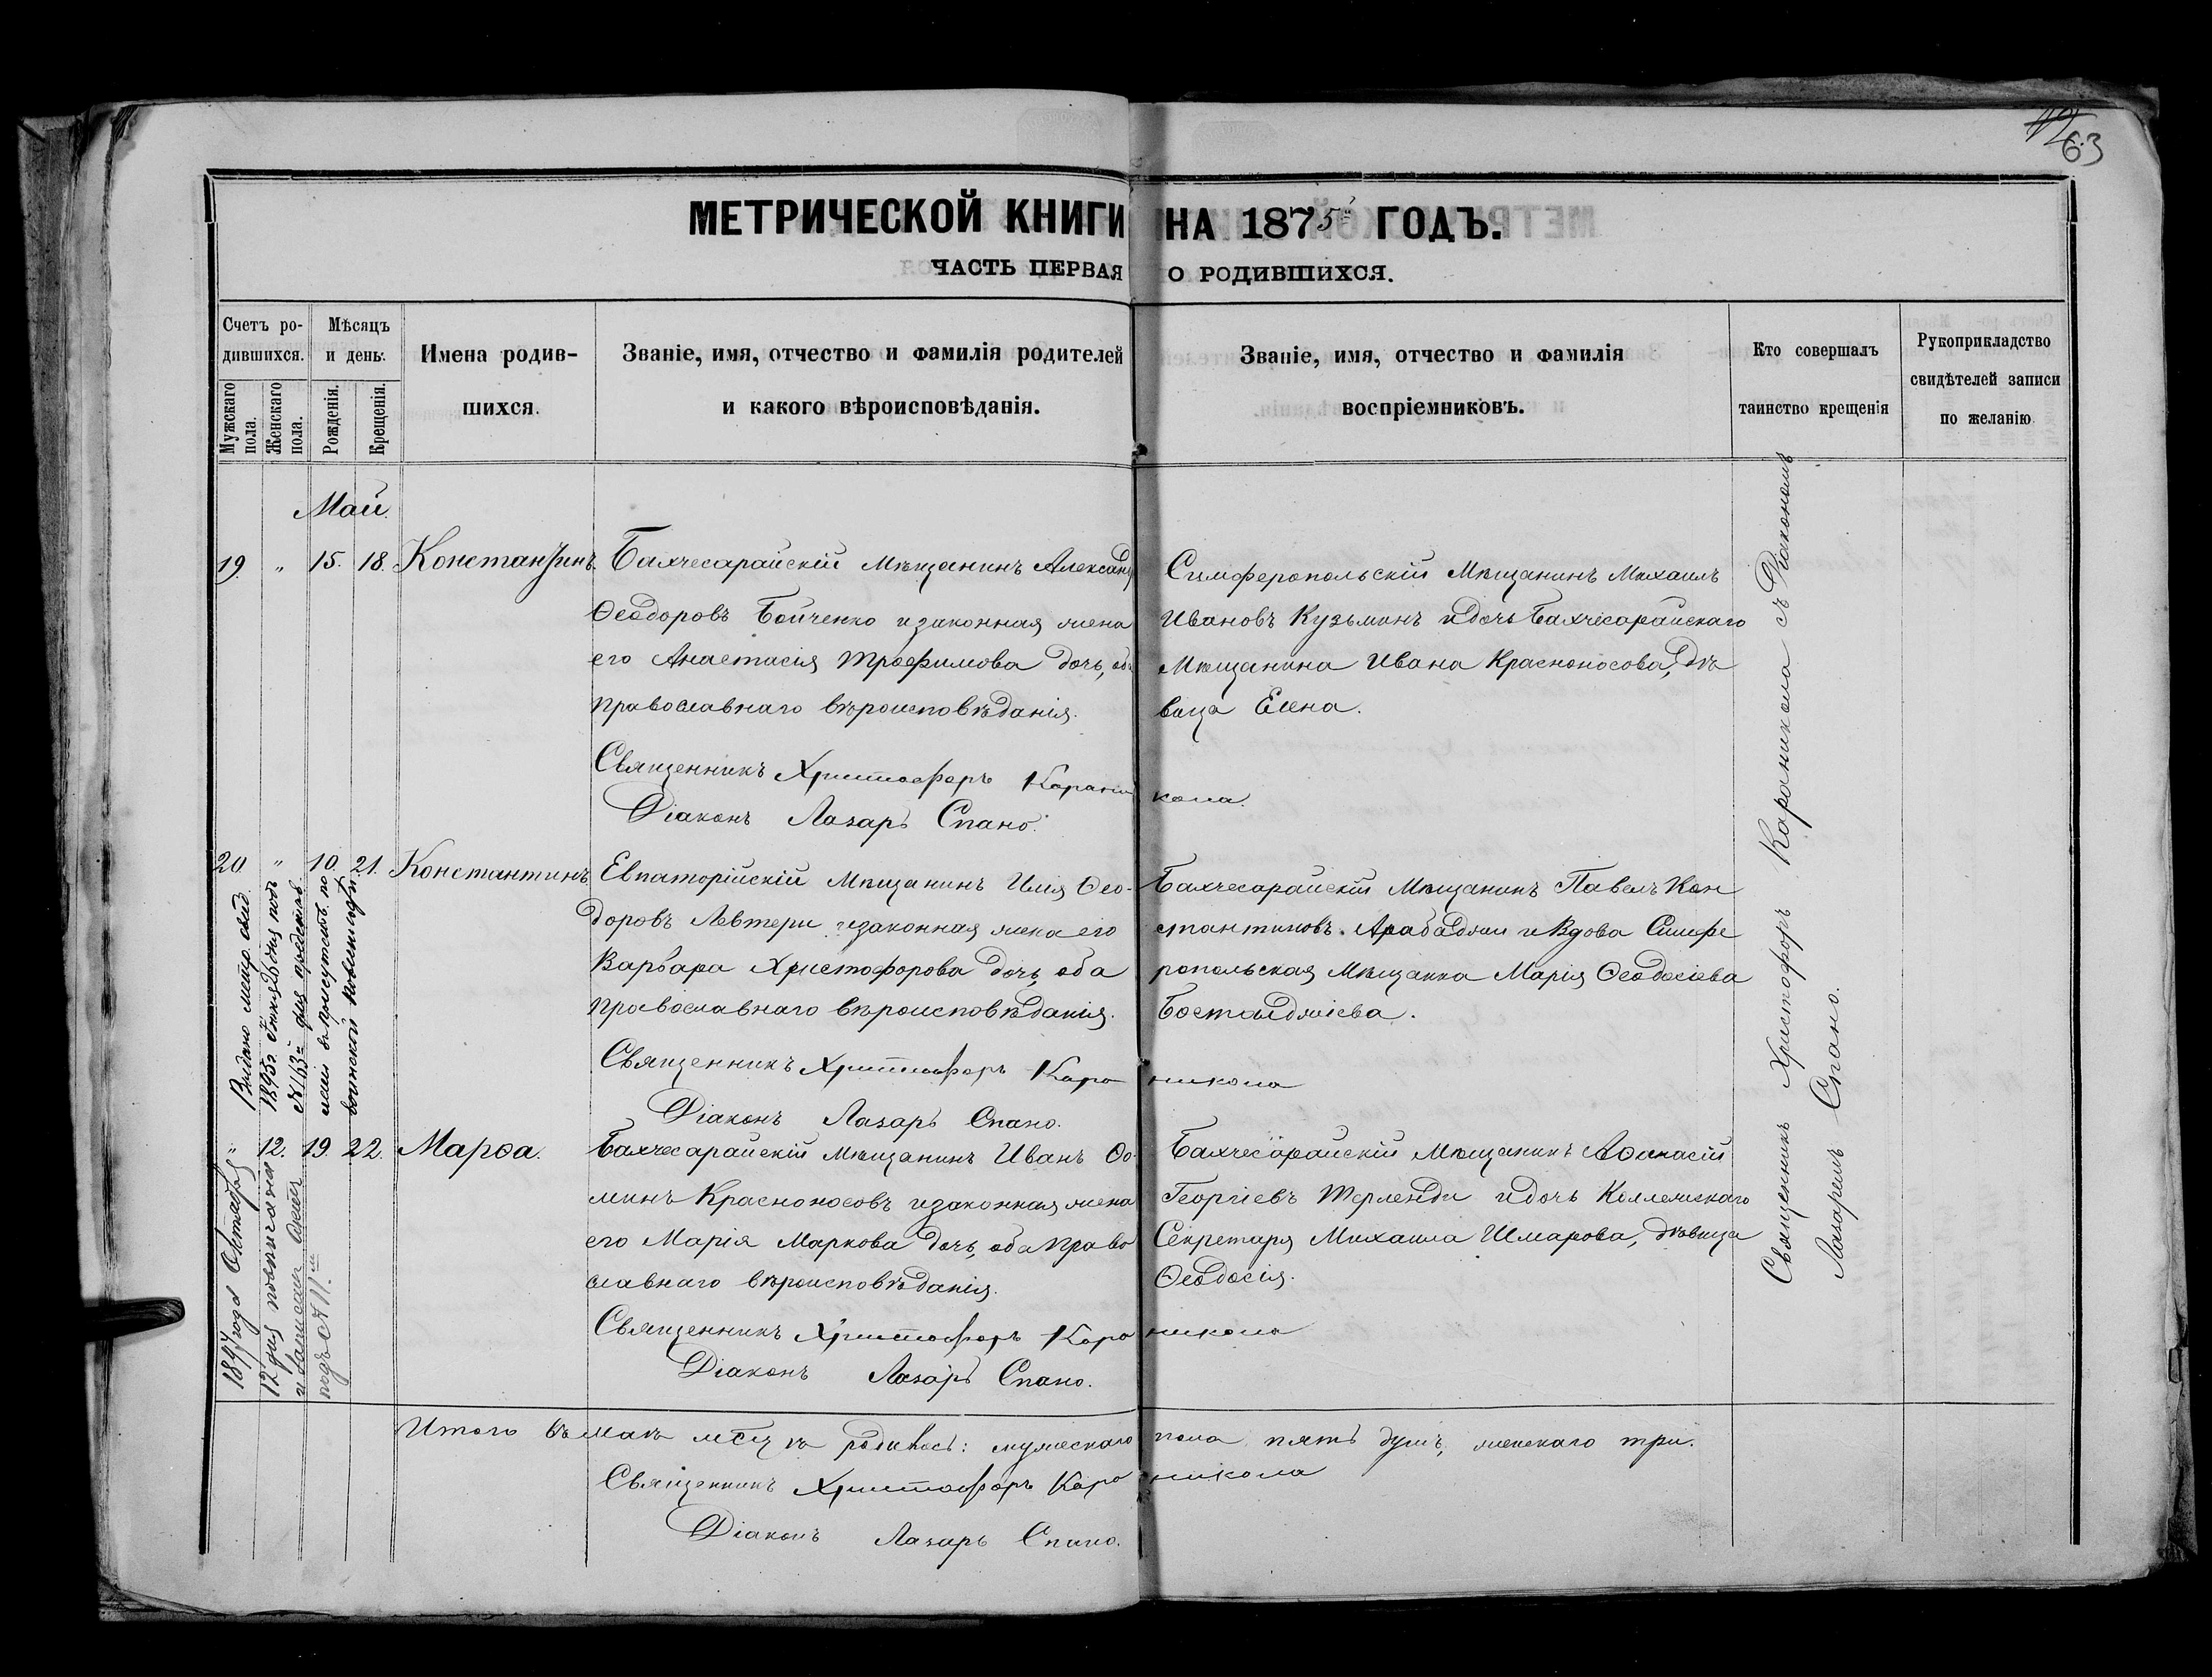 63
МЕТРИЧЕСКОЙ КНИГИ НА 1875 ГОДЪ.
ЧАСТЬ ПЕРВАЯ О РОДИВШИХСЯ.
Счетъ ро-
дившихся.
Мужскаго пола.
Женскаго пола.
Мѣсяцъ
и день.
Рожденія.
Крещенія.
Имена родив-
шихся.
Званіе, имя, отчество и фамилія родителей
и какого вѣроисповѣданія.
Званіе, имя, отчество и фамилія
воспріемниковъ.
Кто совершалъ
таинство крещенія
Рукоприкладство
свидѣтелей записи
по желанію
Май.
19. " 15. 18. Константинъ.
Бахчесарайскій Мѣщанинъ Александръ
Ѳеодоровъ Бойченко и законная жена
его Анастасія Трофимова дочь, оба
православнаго вѣроисповѣданія.
Симферопольскій Мѣщанинъ Михаилъ
Ивановъ Кузьминъ и дочь Бахчесарайскаго
Мѣщанина Ивана Красноносова, дѣ
вица Елена.
Священникъ Христофоръ Караникола.
Діаконъ Лазарь Спано.
20 " 10. 21. Константинъ.
Евпаторійскій Мѣщанинъ Илія Ѳео-
доровъ Левтери и законная жена его
Варвара Христофорова дочь, оба
православнаго вѣроисповѣданія.
Бахчесарайскій Мѣщанинъ Павелъ Кон
стантиновъ Арабаджи и Вдова Симфе
ропольская Мѣщанка Марія Ѳеодосіева
Бостанджіева.
Священникъ Христофоръ Караникола
Діаконъ Лазарь Спано.
Выдано метр. свид.
1895 г. дня подъ
№ 163 для представ
ленія въ присутствіе по
воинской повинности.
" 12. 19. 22. Марѳа.
Бахчесарайскій Мѣщанинъ Иванъ Ѳо-
минъ Красноносовъ и законная жена
его Марія Маркова дочь, оба право
славнаго вѣроисповѣданія.
Бахчесарайскій Мѣщанинъ Аѳанасій
Георгіевъ Терленди и дочь Коллежскаго
Секретаря Михаила Шмарова, дѣвица
Ѳеодосія.
Священникъ Христофоръ Караникола
Діаконъ Лазарь Спано.
1897 года Октября
12 дня повѣнчана
и записан актъ
подъ № 11.
Священникъ Христофоръ Караникола съ Діакономъ
Лазаремъ Спано.
Итого въ маѣ мѣсяцѣ родилось: мужескаго пола пять душъ, женскаго три.
Священникъ Христофоръ Караникола
Діаконъ Лазарь Спано.